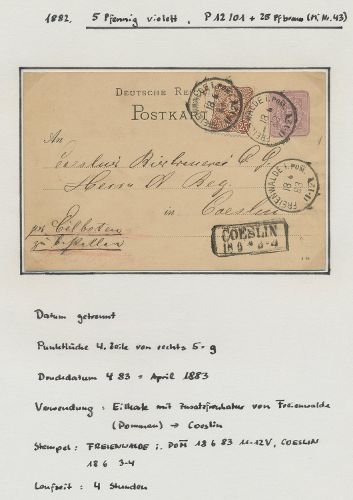 1882. 5 Pfennig violett, P 12/01 + 25 Pf braun (Mi Nr. 43)
DEUTSCHE REI
POSTKART
An
Coeslin Bierbrauerei A. G.
Herrn A Beg.
in Coeslin
per Eilboten
zu bestellen
FREIENWALDE i. POM
18 6 83
11-12V
COESLIN
18 6 3-4
Datum getrennt
Punktlücke 4. Zeile von rechts 5-9
Druckdatum 4 83 = April 1883
Verwendung : Eilkarte mit Zusatzfrankatur von Freienwalde
(Pommern) → Coeslin
Stempel: FREIENWALDE i. POM 18 6 83 11-12V, COESLIN
18 6 3-4
Laufzeit : 4 Stunden